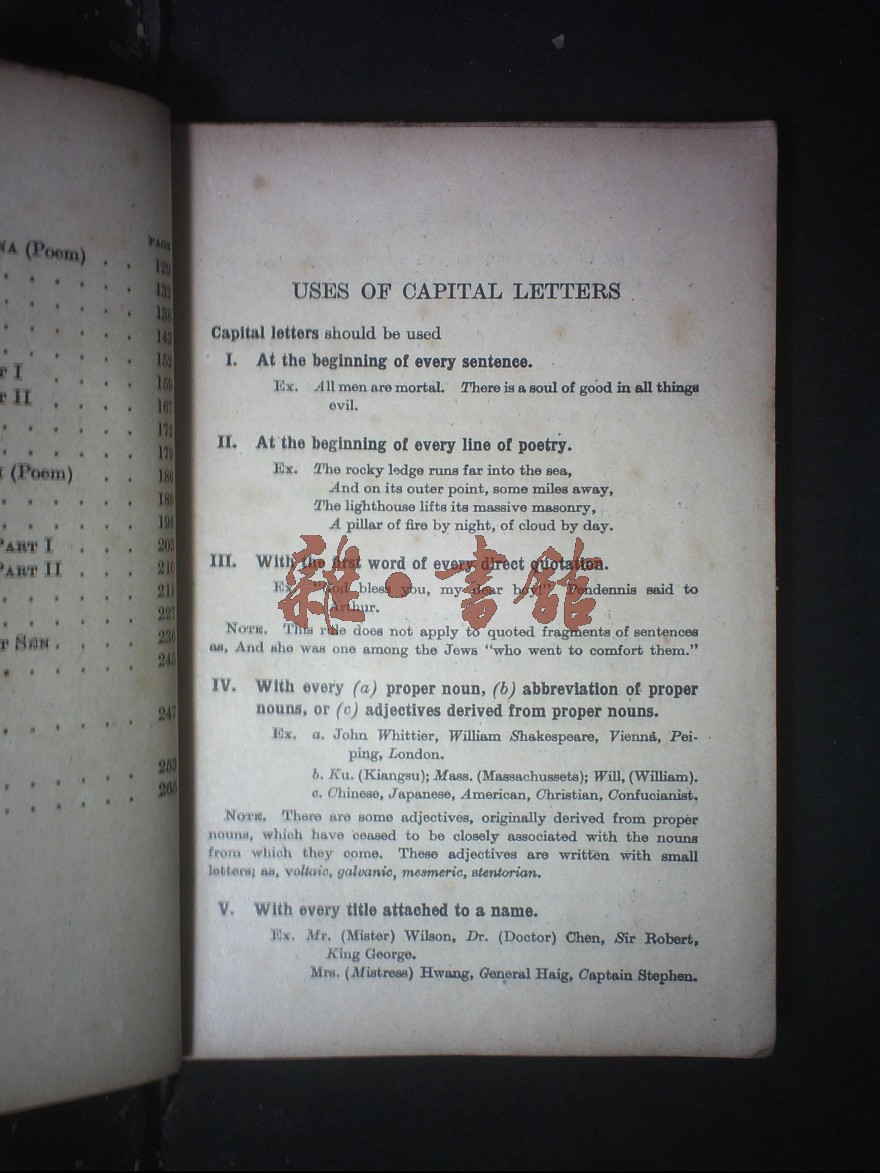 PAGE
NA (Poem) . . 129
. . . . . . 132
. . . . . . 138
. . . . . . 143
. . . . . . 152
T I . . . . 159
T II . . . . 167
. . . . . . 172
. . . . . . 179
I (Poem) . . 186
. . . . . . 189
. . . . . . 196
PART I . . . 203
PART II . . . 210
. . . . . . 218
. . . . . . 227
T SEN . . . . 236
. . . . . . 245
. . . . . . 247
. . . . . . 253
. . . . . . 265
USES OF CAPITAL LETTERS
Capital letters should be used
I. At the beginning of every sentence.
Ex. All men are mortal. There is a soul of good in all things
evil.
II. At the beginning of every line of poetry.
Ex. The rocky ledge runs far into the sea,
And on its outer point, some miles away,
The lighthouse lifts its massive masonry,
A pillar of fire by night, of cloud by day.
III. With the first word of every direct quotation.
Ex. "God bless you, my dear boy!" Pendennis said to
Arthur.
雜·書館
NOTE. This rule does not apply to quoted fragments of sentences
as, And she was one among the Jews "who went to comfort them."
IV. With every (a) proper noun, (b) abbreviation of proper
nouns, or (c) adjectives derived from proper nouns.
Ex. a. John Whittier, William Shakespeare, Vienna, Pei-
ping, London.
b. Ku. (Kiangsu); Mass. (Massachussets); Will, (William).
c. Chinese, Japanese, American, Christian, Confucianist.
NOTE. There are some adjectives, originally derived from proper
nouns, which have ceased to be closely associated with the nouns
from which they come. These adjectives are written with small
letters; as, voltaic, galvanic, mesmeric, stentorian.
V. With every title attached to a name.
Ex. Mr. (Mister) Wilson, Dr. (Doctor) Chen, Sir Robert,
King George.
Mrs. (Mistress) Hwang, General Haig, Captain Stephen.